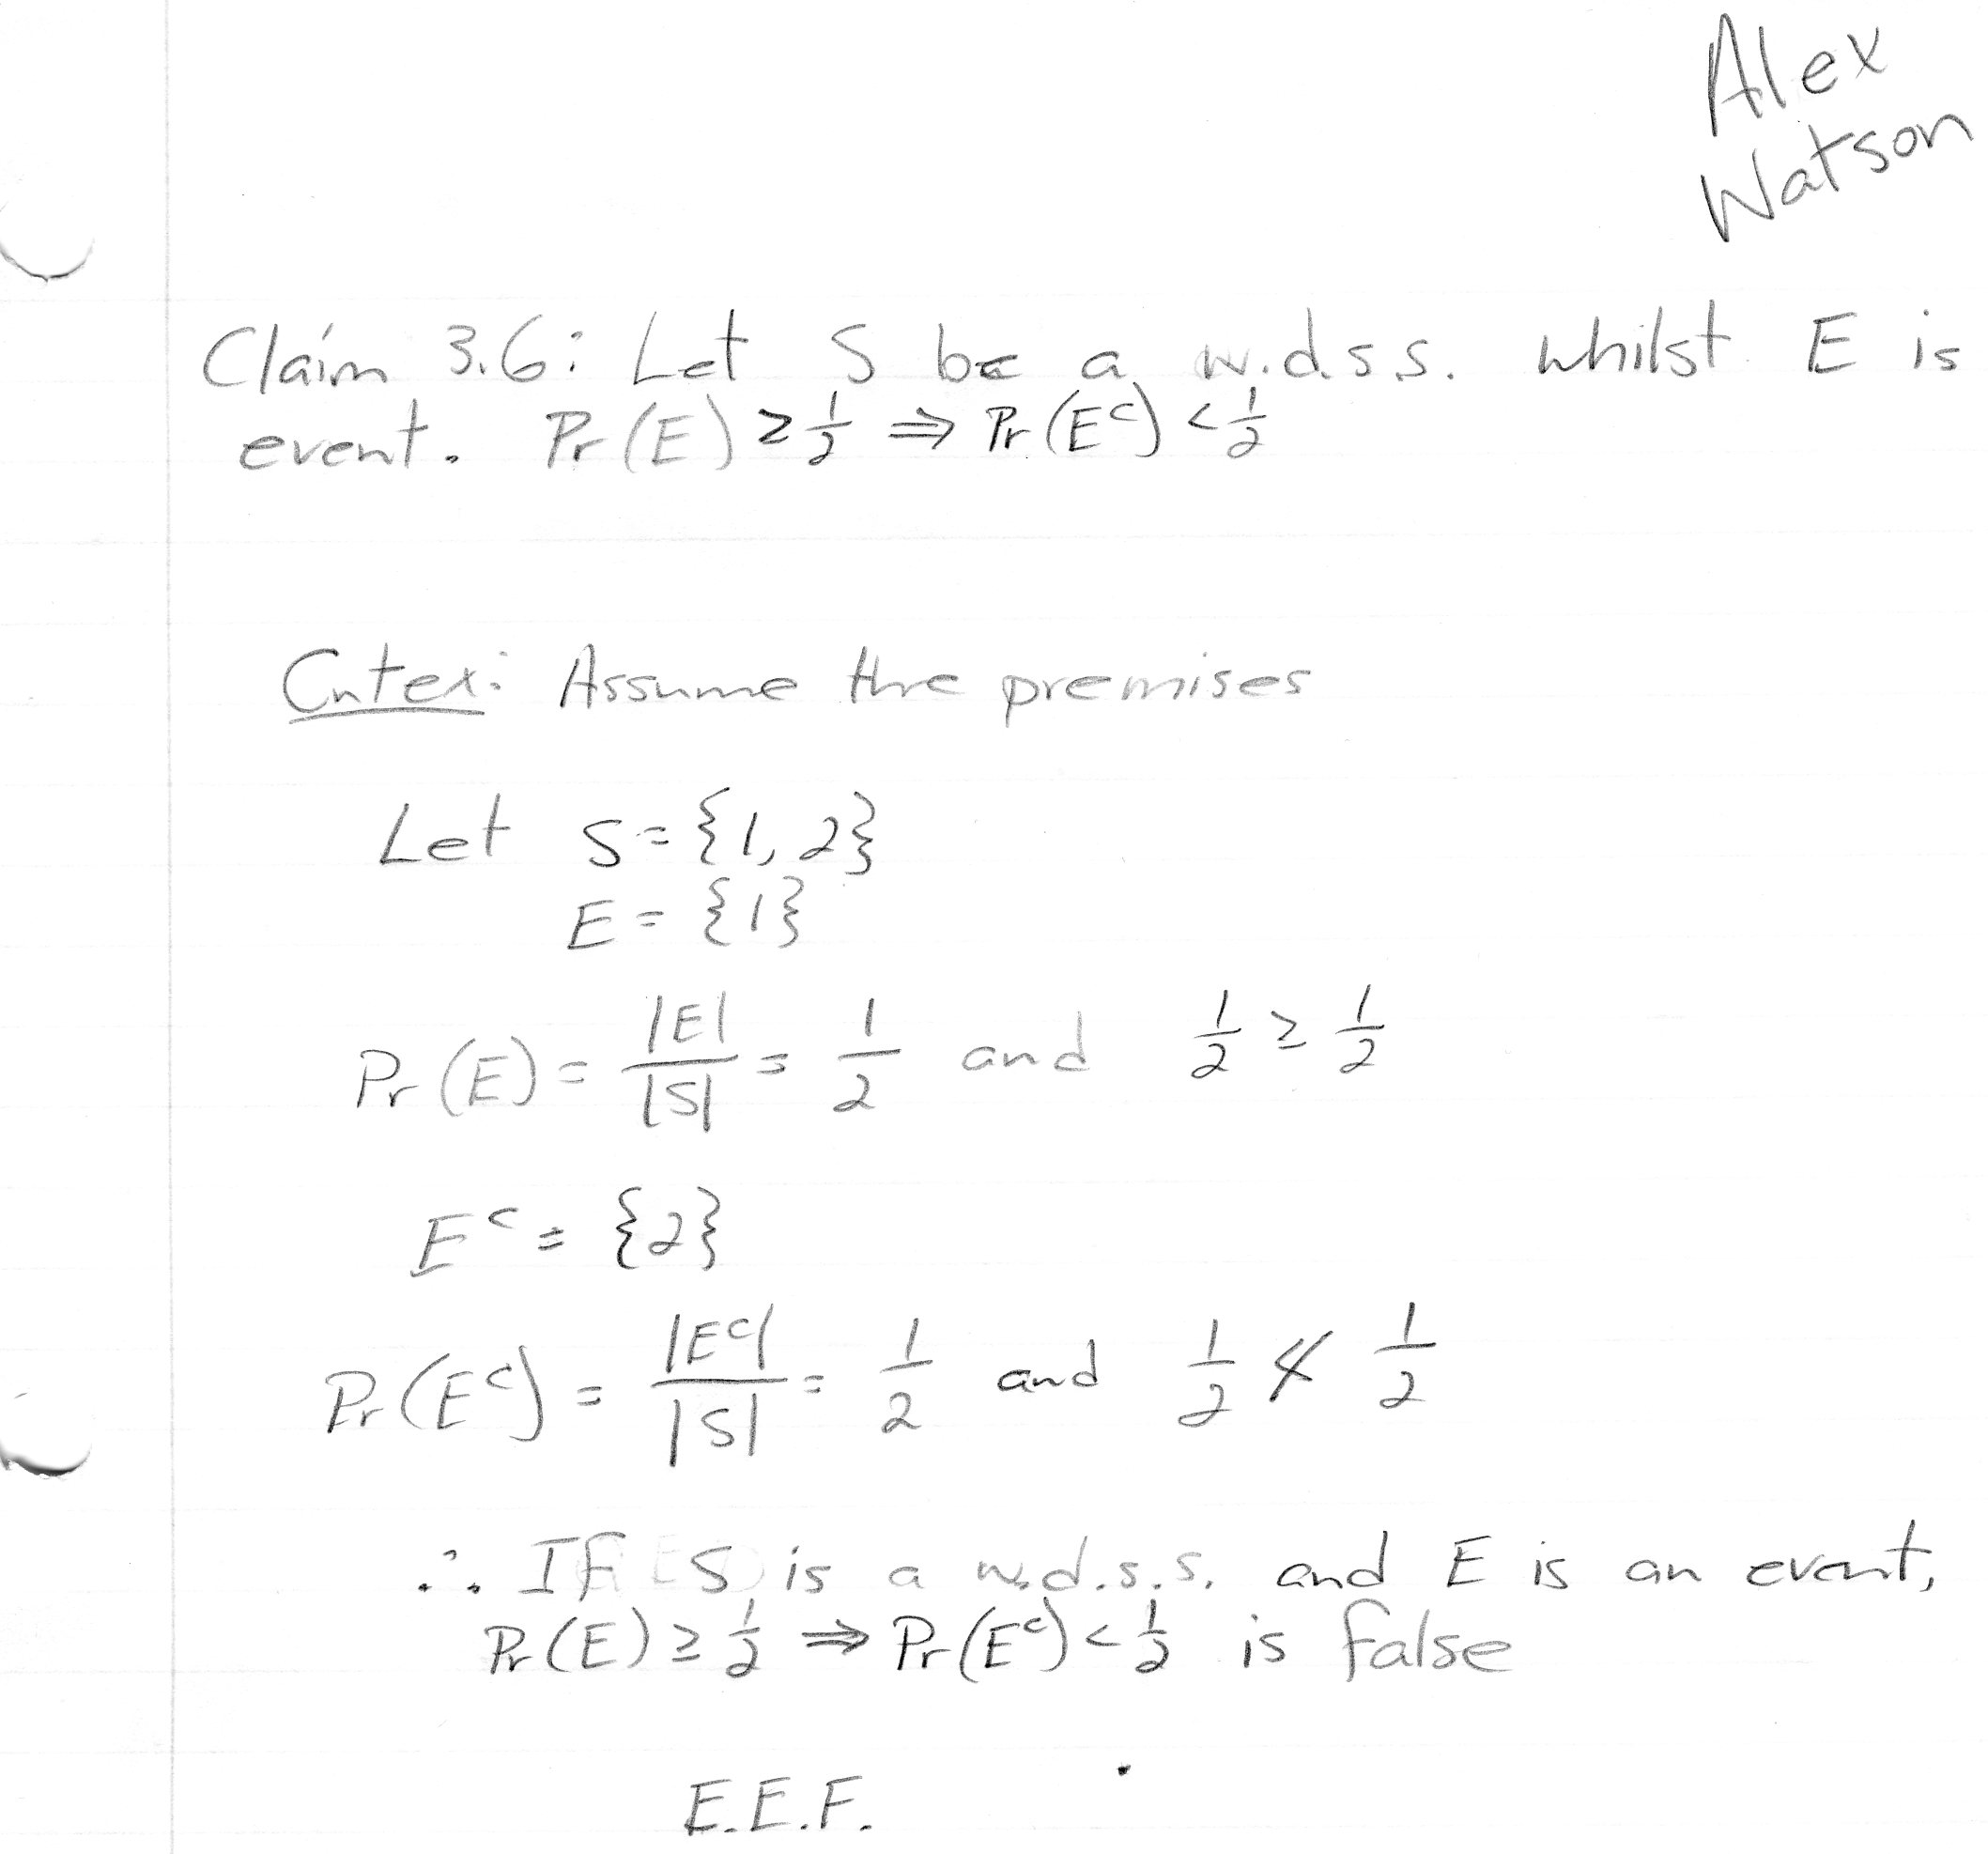 Alex
Watson
Claim 3.6: Let S be a w.d.s.s. whilst E is
event. Pr(E) ≥ 1/2 ⇒ Pr(E^c) < 1/2
Cntex: Assume the premises
Let S = {1, 2}
E = {1}
Pr(E) = |E|/|S| = 1/2 and 1/2 ≥ 1/2
E^c = {2}
Pr(E^c) = |E^c|/|S| = 1/2 and 1/2 ≮ 1/2
∴ If S is a w.d.s.s. and E is an event,
Pr(E) ≥ 1/2 ⇒ Pr(E^c) < 1/2 is false
E.E.F.